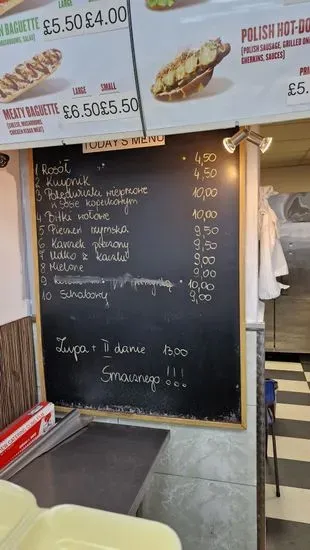 LARGE SMALL
BAGUETTE
£5.50 £4.00
LARGE SMALL
MEATY BAGUETTE £6.50 £5.50
POLISH HOT-DO
(POLISH SAUSAGE, GRILLED ON
GHERKINS, SAUCES)
£5.
TODAY'S MENU
1 Rosół 4,50
2 Krupnik 4,50
3 Polędwiczki wieprzowe 10,00
w sosie kopeřkowym
4 Bitki wołowe 10,00
5 Pieczeń rzymska 9,50
6 Karczek pieczony 9,50
7 Udko z kaczki 9,00
8 Mielone 9,00
9 10,00
10 Schabowy 9,00
Zupa + II danie 13,00
Smacznego !!!